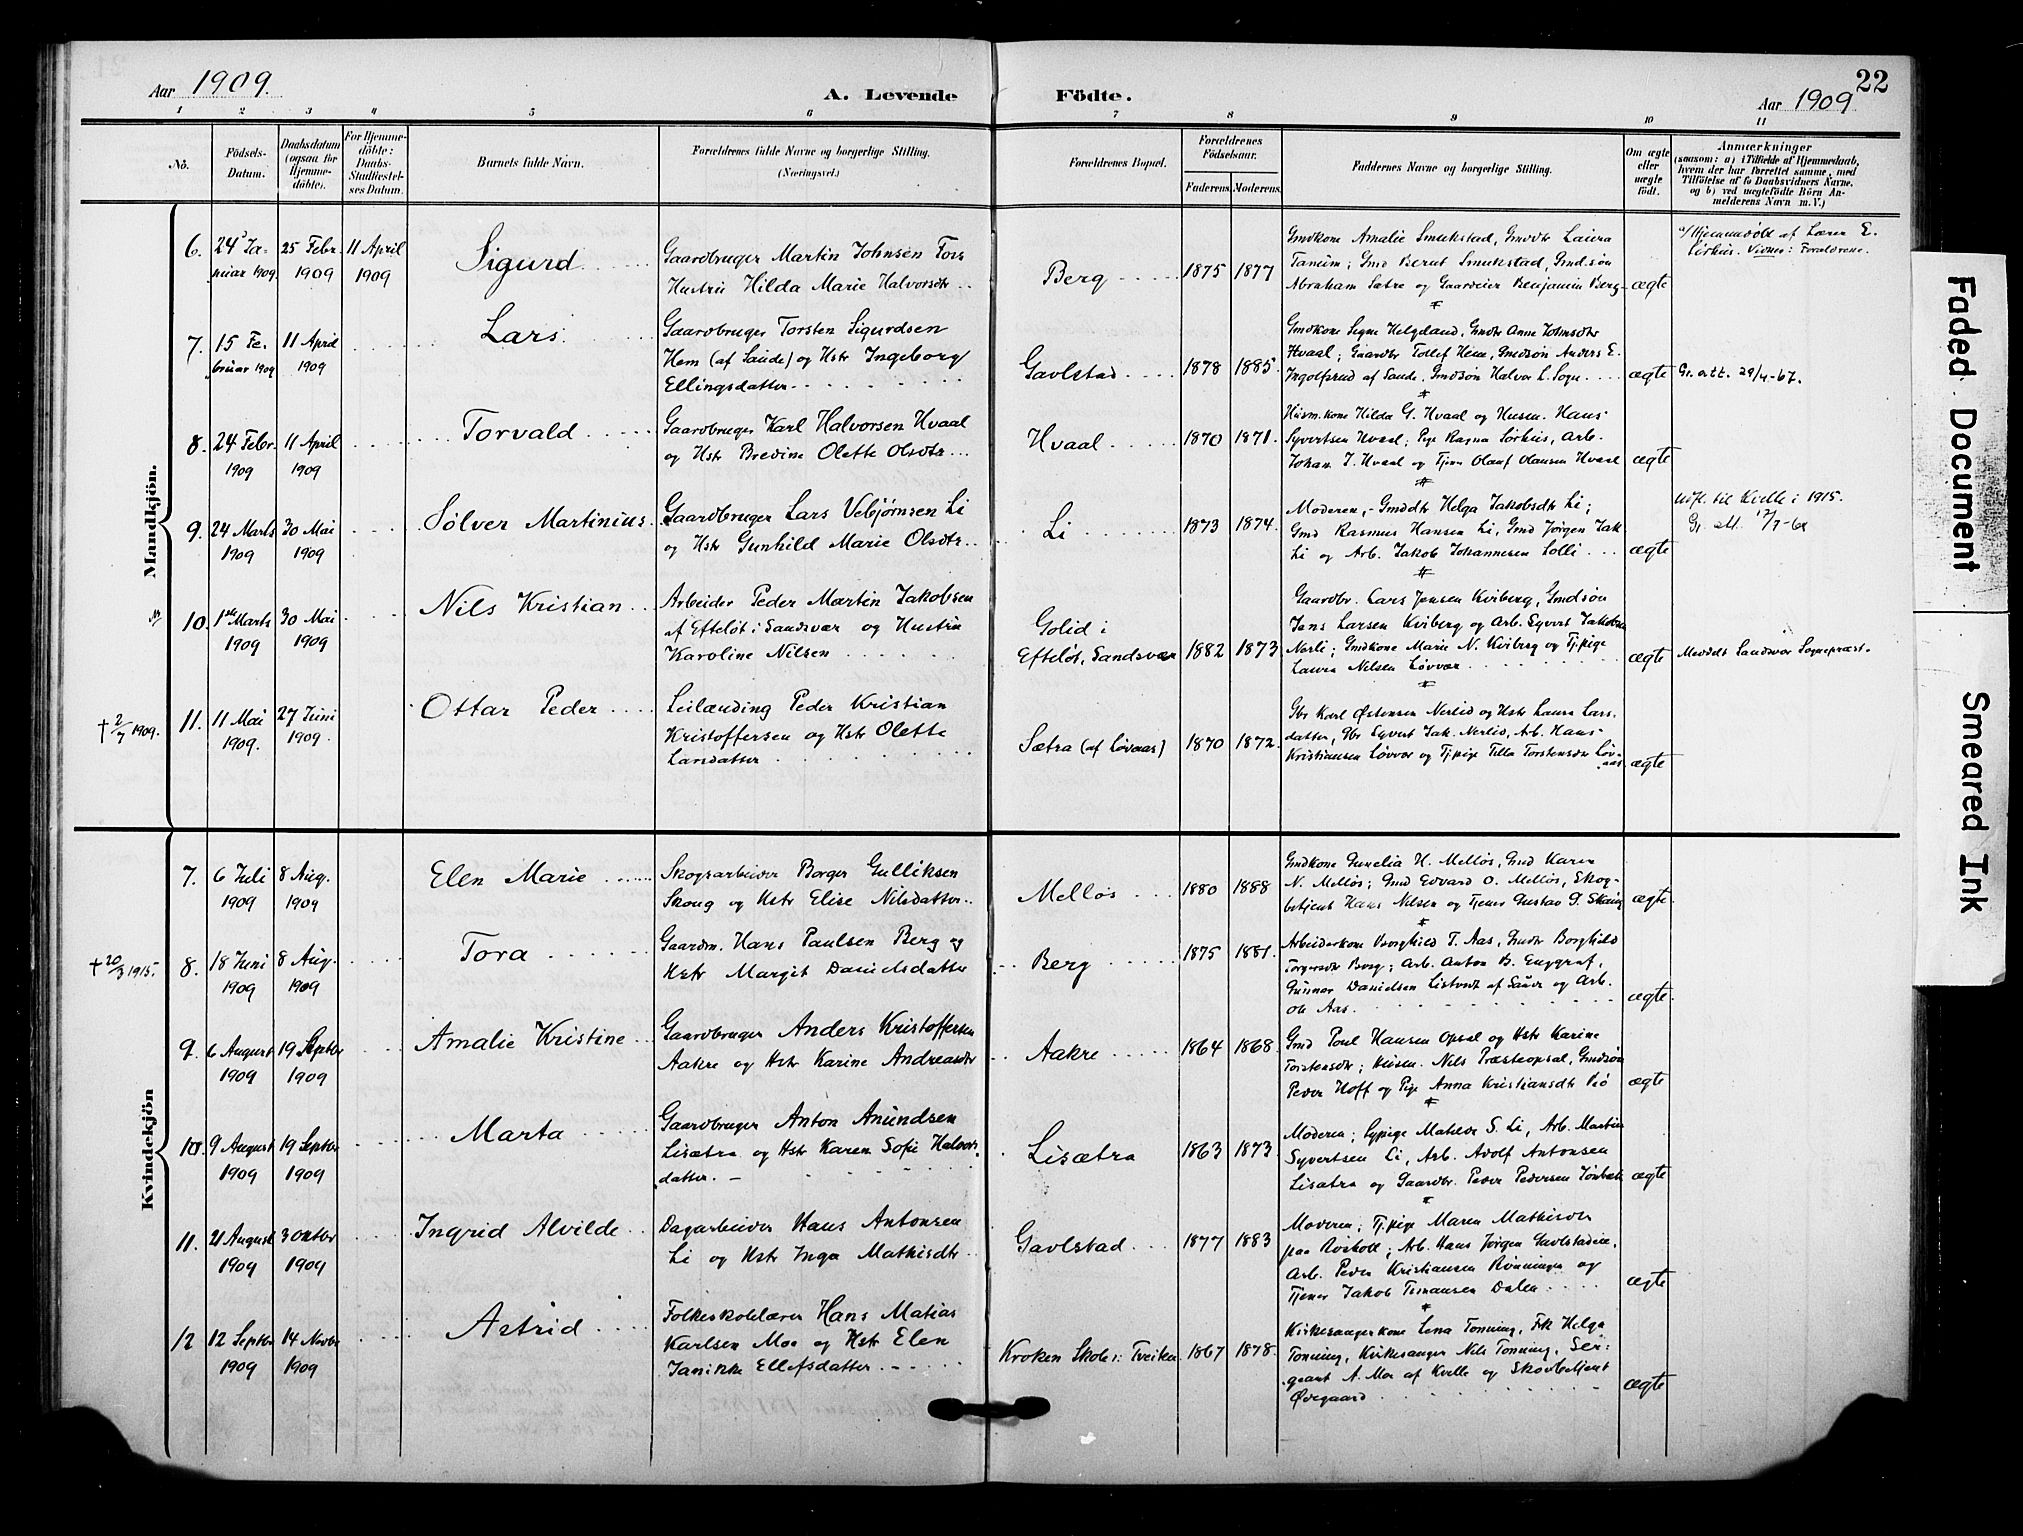 Aar 1909.
A. Levende Födte.
22
Aar 1909
1 2 3 4 5 6 7 8 9 10 11
No.
Födsels-Datum.
Daabsdatum (ogsaa for Hjemme-döbte).
For Hjemme-döbte: Daabs-Stadfæstel-ses Datum.
Barnets fulde Navn.
Forældrenes fulde Navne og borgerlige Stilling. (Næringsvei.)
Forældrenes Bopæl.
Forældrenes Födselsaar.
Faderens. Moderens.
Faddernes Navne og borgerlige Stilling.
Om ægte eller uægte födt.
Anmærkninger
(saasom: a) i Tilfælde af Hjemmedaab, hvem der har forrettet samme, med Tilföielse af to Daabsvidners Navne, og b) ved uægtefödte Börn An-melderens Navn m. V.)
Mandkjön.
6. 24 Ja- 25 Febr. 11 April
nuar 1909 1909 1909
Sigurd
Gaardbruger Martin Johnsen Fors
Hustru Hilda Marie Halvorsdtr
Berg 1875 1877
Gmdkone Amalie Smukstad, Gmddtr Laura
Tanum; Gmd Bernt Smukstad, Gmdsøn
Abraham Sætre og Gaardeier Benjamin Berg
ægte
a/ Hjemmedøbt af Lærer E.
Sørhus. Vidner: Forældrene.
7. 15 Fe- 11 April
bruar 1909 1909
Lars
Gaardbruger Torsten Sigurdsen
Hem (af Saude) og Hstr Ingeborg
Ellingsdatter
Gavlstad 1878 1885
Gmdkone Signe Helgeland, Gmdtr Anne Johnsdtr
Hvaal; Gaardbr Tollef Hem, Gmdsøn Anders E.
Ingolfsrud af Sande, Gmdsøn Halvor L. Sogn
ægte
Gr. att. 29/4-67.
8. 24 Febr. 11 April
1909 1909
Torvald
Gaardbruger Karl Halvorsen Hvaal
og Hstr Bredine Olette Olsdtr
Hvaal 1870 1871
Husm.kone Hilda G. Hvaal og Husm. Hans
Syvertsen Hvaal; Pige Ragna Sørhus, Arb.
Johan J. Hvaal og Tjen Olauf Olausen Hvaal
ægte
9. 24 Marts 30 Mai
1909 1909
Sølver Martinius
Gaardbruger Lars Vebjørnsen Li
og Hstr Gunhild Marie Olsdtr
Li 1873 1874
Moderen, Gmddtr Helga Jakobsdtr Li;
Gmd Rasmus Hansen Li, Gmd Jørgen Jak.
Li og Arb. Jakob Johannesen Lolli
ægte
udfl. til Kvelle i 1915.
10. 1ste Marts 30 Mai
1909 1909
Nils Kristian
Arbeider Peder Martin Jakobsen
af Efteløt i Sandsvær og Hustru
Karoline Nilsen
Golid i
Efteløt, Sandsvær 1882 1873
Gaardbr. Lars Jensen Kviberg, Gmdsøn
Jens Larsen Kviberg og Arb. Syvert Jakobsen
Nerli; Gmdkone Marie N. Kviberg og Tj.pige
Laura Nilsen Løvvar
ægte
Meddelt Sandsvær Sognepræst.
† 2/7 1909.
11. 11 Mai 27 Juni
1909. 1909
Ottar Peder
Leilænding Peder Kristian
Kristoffersen og Hstr Olette
Larsdatter
Sætra (af Løvaas) 1870 1872
Gbr Karl Østensen Nerlid og Hstr Laura Lars-
datter, Gbr Syvert Jak. Nerlid, Arb. Hans
Kristiansen Løvvar og Tj.pige Tilla Torstensdtr Løv-
aas
ægte
Kvindekjön
7. 6 Juli 8 Aug.
1909 1909
Elen Marie
Skogsarbeider Borger Gulliksen
Skoug og Hstr Elise Nilsdatter
Melløs 1880 1888
Gmdkone Gunelia H. Melløs, Gmd Karen
N. Melløs; Gmd Edvard O. Melløs, Skog-
betjent Hans Nilsen og Tjener Gustav G. Skaug
ægte
† 20/3 1915.
8. 18 Juni 8 Aug.
1909 1909
Tora
Gaardm. Hans Paulsen Berg og
Hstr Margit Danielsdatter
Berg 1875 1881
Arbeiderkone Borghild T. Aas, Gmdtr Borghild
Torgersdtr Berg; Arb. Anton B. Enggraf,
Gunnar Danielsen Listvedt af Saude og Arb.
Ole Aas.
ægte
9. 6 August 19 Septbr
1909 1909
Amalie Kristine
Gaardbruger Anders Kristoffersen
Aakre og Hstr Karine Andreasdtr
Aakre 1864 1868
Gmd Poul Hansen Opsal og Hstr Karine
Torstensdtr; Husm. Nils Præsteopsal, Gmdsøn
Peder Hoff og Pige Anna Kristiansdtr Vió
ægte
10. 9 August 19 Septbr
1909 1909
Marta
Gaardbruger Anton Amundsen
Lisætra og Hstr Karen Sofie Halvors-
datter.
Lisætra 1863 1873
Moderen; Sypige Matilde S. Li, Arb. Martin
Syvertsen Li, Arb. Adolf Antonsen
Lisætra og Gaardbr. Peder Pedersen Jonbæk
ægte
11. 21 August 3 Oktbr
1909 1909
Ingrid Alvilde
Dagarbeider Hans Antonsen
Li og Hstr Inga Mathisdtr
Gavlstad 1877 1883
Moderen; Tj.pige Maren Mathisdtr
paa Røskoll; Arb. Hans Jørgen Gavlstadeie,
Arb. Peder Kristiansen Rønningen og
Tjener Jakob Timansen Dalen
ægte
12 12 Septbr 14 Novbr
1909 1909
Astrid
Folkeskolelærer Hans Matias
Karlsen Moe og Hstr Elen
Janikke Ellefsdatter
Kroken Skole i Tveiten 1867 1878
Kirkesangerkone Lena Tonning, Frk Helga
Tonning, Kirkesanger Nils Tonning, Ser-
geant A. Moe af Kvelle og Skovbetjent
Ødegaard
ægte
Faded Document
Smeared Ink